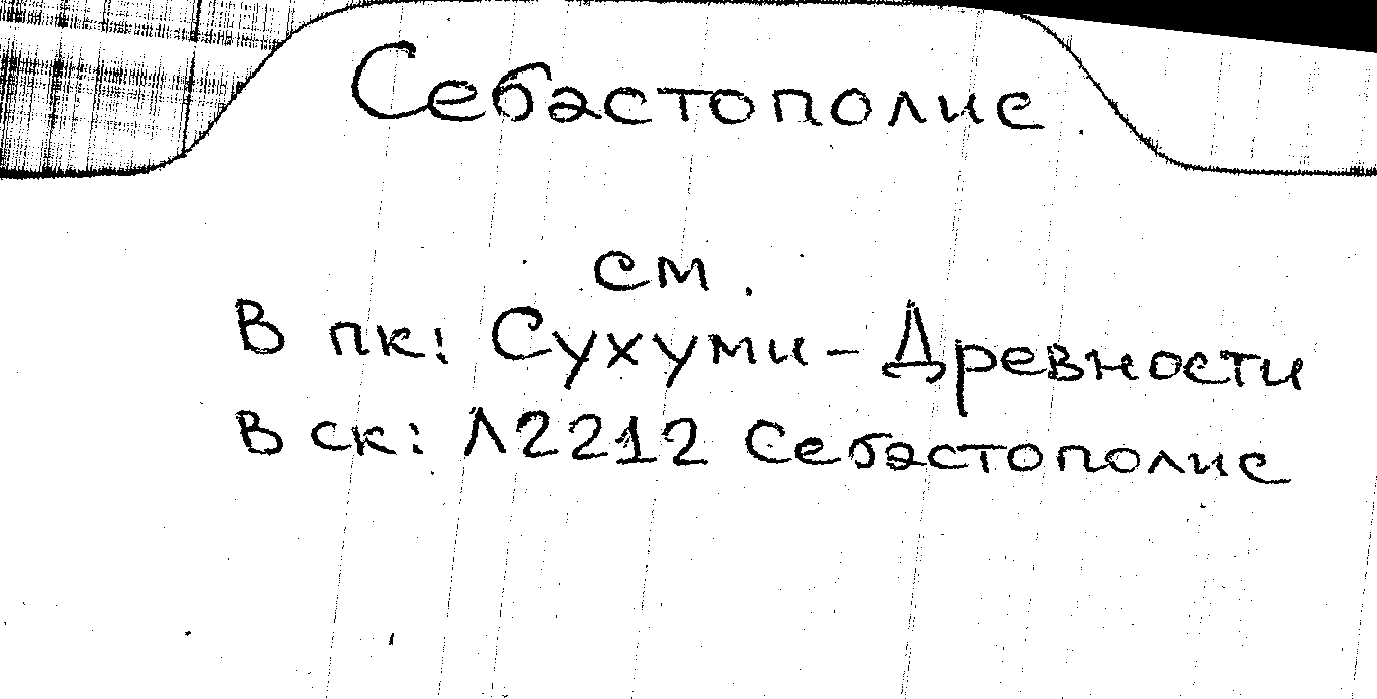 Себастополис
см.
В пк: Сухуми - Древности
В ск: Л2212 Себастополис